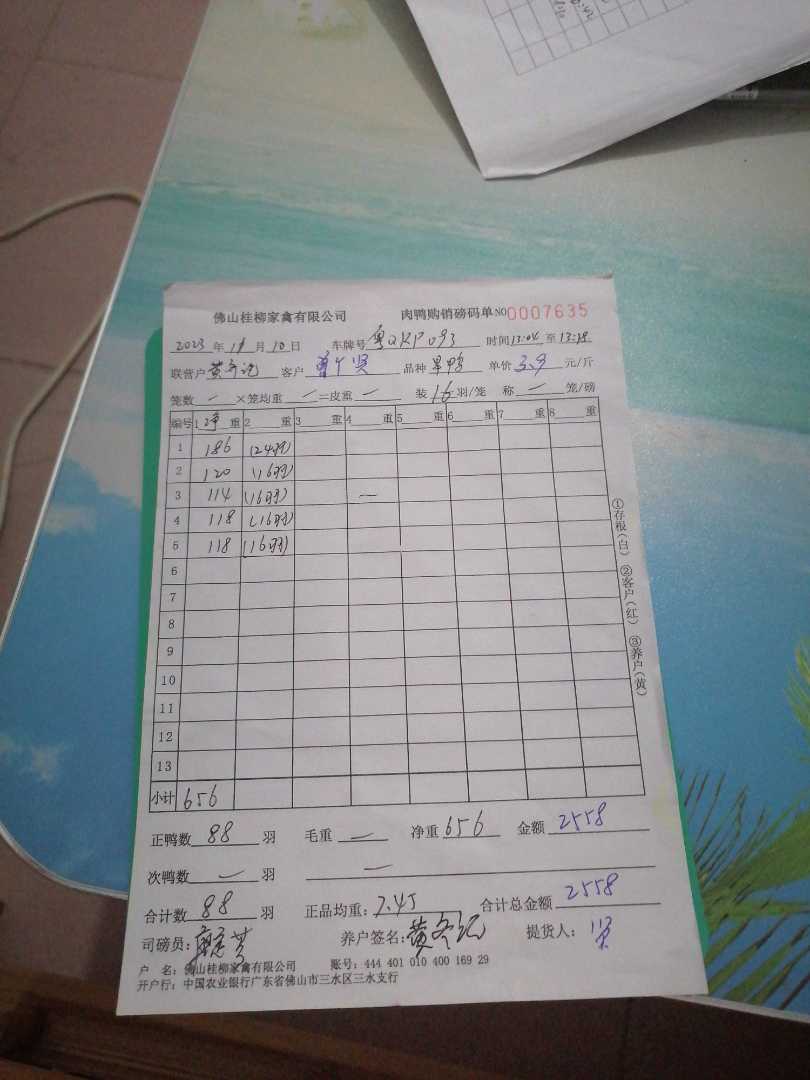 佛山桂柳家禽有限公司 肉鸭购销磅码单 NO 0007635
2023 年 月 10 日 车牌号 粤QKP093 时间 13:04 至 13:18
联营户 黄 客户 品种 单价 3.9 元/斤
笼数 — ×笼均重 — =皮重 — 装 16 羽/笼 称 — 笼/磅
编号 1 净 重 2 重 3 重 4 重 5 重 6 重 7 重 8 重
1 186 (24羽)
2 120 (16羽)
3 114 (16羽) —
4 118 (16羽)
5 118 (16羽)
6
7
8
9
10
11
12
13
小计 656
正鸭数 88 羽 毛重 — 净重 656 金额 2558
次鸭数 — 羽 —
合计数 88 羽 正品均重: 7.45 合计总金额 2558
司磅员: 养户签名: 黄 提货人:
户 名: 佛山桂柳家禽有限公司 账号: 444 401 010 400 169 29
开户行: 中国农业银行广东省佛山市三水区三水支行
①存根(白) ②客户(红) ③养户(黄)